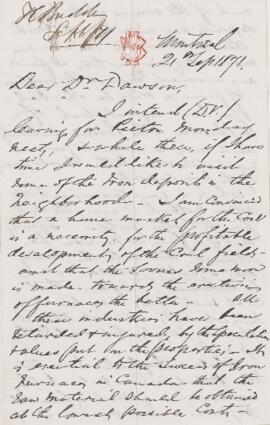 Montreal
21 Sep 1871.
Dear Dr Dawson,
I intend (D.V.)
leaving for Pictou Monday
next, & while there, if I have
time I would like to visit
some of the Iron deposits in the
neighborhood - I am convinced
that a home market for the Coal
is a necessity for the profitable
development of the Coal fields -
and that the sooner some move
is made towards the erection
of furnaces the better - All
these industries have been
retarded & injured by the speculation
values put on the properties - It
is essential to the success of Iron
furnaces in Canada that the
raw material should be obtained
at the lowest possible Cost -